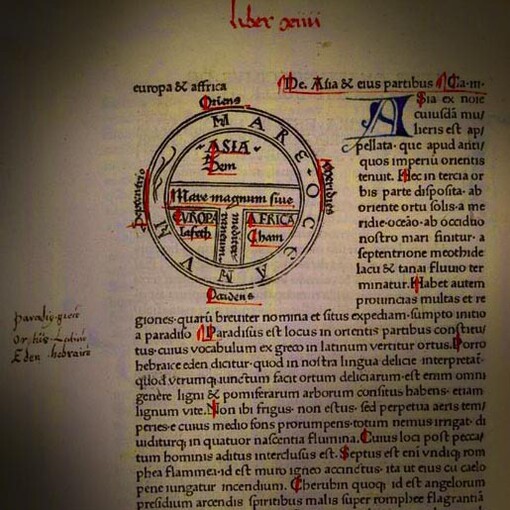 liber xiiii
europa & affrica
De. Asia & eius partibus Ca·iii·
Oriens
MARE OCCEANVM
ASIA
Sem
Septentrio
Meridies
Mare magnum siue
mediterraneum
EVROPA
Iafeth
AFRICA
Cham
Occidens
Asia ex noie
cuiusdā mu/
lieris est ap/
pellata· que apud anti/
quos imperiū orientis
tenuit. Hec in tercia or
bis parte disposita· ab
oriente ortu solis· a me
ridie· oceāo· ab occiduo
nostro mari finitur· a
septentrione meothide
lacu & tanai fluuio ter
minatur. Habet autem
prouincias multas et re
giones· quarū breuiter nomina et situs expediam· sumpto initio
a paradiso Paradisus est locus in orientis partibus constitu/
tus· cuius vocabulum ex greco in latinum vertitur ortus. Porro
hebraice eden dicitur· quod in nostra lingua delicie interpretat̄·
quod vtrumqꝫ iunctum facit ortum deliciarum· est enim omni
genere ligni & pomiferarum arborum consitus habens· etiam
lignum vite. Non ibi frigus· non estus· sed perpetua aeris tem/
peries· e cuius medio fons prorumpens· totum nemus irrigat· di
uiditurqꝫ in quatuor nascentia flumina. Cuius loci post pecca/
tum hominis aditus interclusus est. Septus est eni vndiqꝫ rom
phea flammea· id est muro igneo accinctus· ita ut eius cū caelo
pene iungatur incendium. Cherubin quoqꝫ id est angelorum
presidium arcendis spiritibus malis super romphee flagrantiā